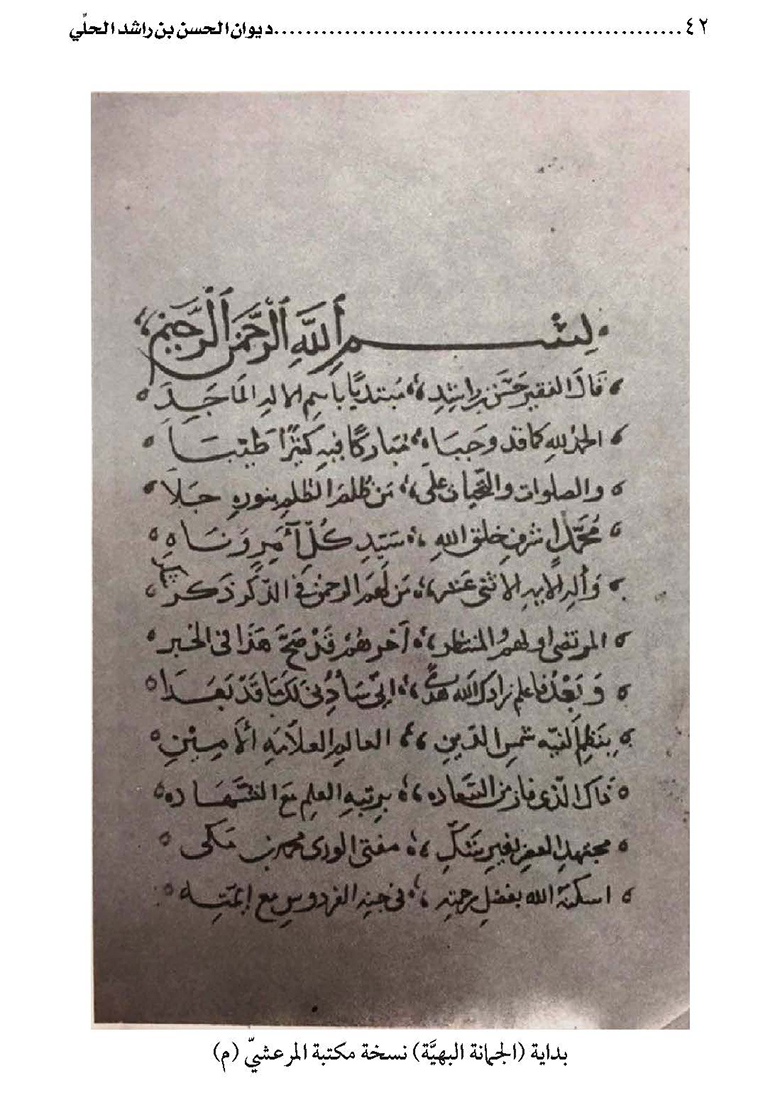 ٤٢......................................................ديوان الحسن بن راشد الحلّي
بسم الله الرَّحمن الرَّحيم
قال الفقير حسن بن راشد مبتديًا باسم الاله الماجد
الحمد لله كما قد وجبا مباركًا فيه كثيرًا طيّبا
والصلوات والتحيات على من ظلم الظلم بنوره جلا
محمّد اشرف خلق الله سَيّد كُلّ آمِرٍ وَناهِ
وآله الايمه الاثنى عشر من لهم الرحمن فى الذكر ذكر
المرتضى اولهم والمنتظر آخرهم قد صحّ هذا فى الخبر
وَبَعْدُ فاعلم زادك الله هدى انى سَاذكر لك ما قَدْ بَعُدَا
بنظم الفيه شمس الدين العالم العلامه الامين
ذاك الذى فاز من السّعاده برتبه العلم مع الشّهاده
مجتهد العصر بغير شكّ مفتى الورى محمد بن مكى
اسكنه الله بفضل رحمته فى جنه الفردوس مع ائمّته
بداية (الجمانة البهيَّة) نسخة مكتبة المرعشيّ (م)